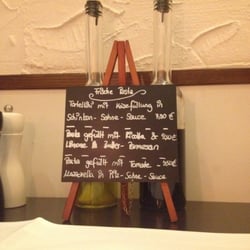 Frische Pasta
Tortellini mit Käsefüllung in
Schinken-Sahne-Sauce
Pasta gefüllt mit Ricotta &
Limone
Pasta gefüllt mit Tomate
Mozzarella in Pilz-Sahne-Sauce